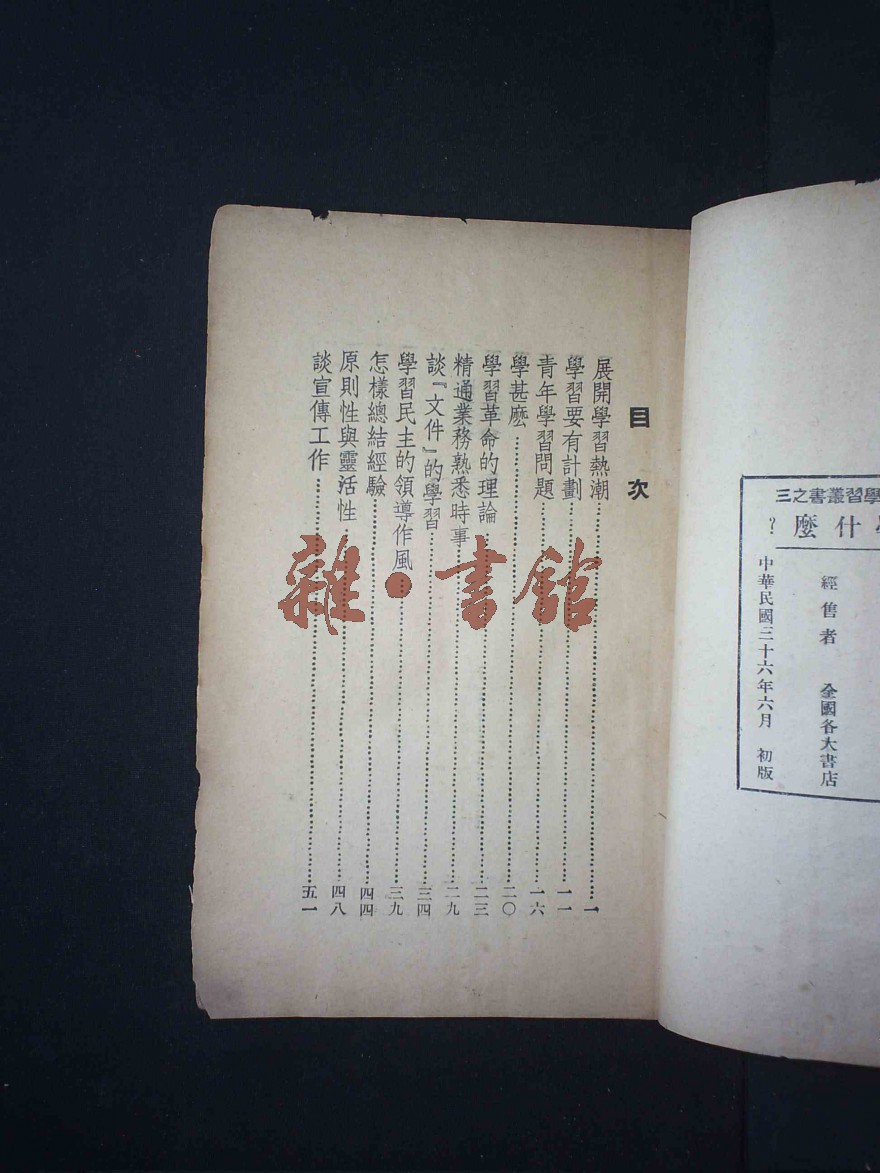 目次
展開學習熱潮……一
學習要有計劃……一一
青年學習問題……一六
學甚麽……二〇
學習革命的理論……二三
精通業務熟悉時事……二九
談『文件』的學習……三四
學習民主的領導作風……三九
怎樣總結經驗……四四
原則性與靈活性……四八
談宣傳工作……五一
學習叢書之三
什麼？
經售者 全國各大書店
中華民國三十六年六月 初版
雜·書館